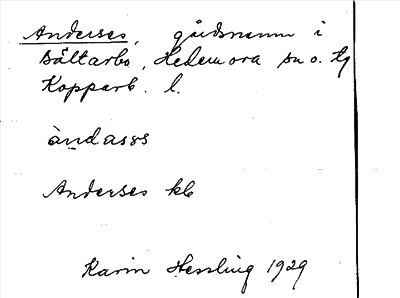 Anderses, gårdsnamn i
Sältarbo, Hedemora sn o. tg
Kopparb. l.
àndasəs
Anderses kb
Karin Hessling 1929